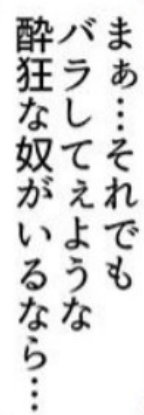 まぁ…それでも
バラしてぇような
酔狂な奴がいるなら…